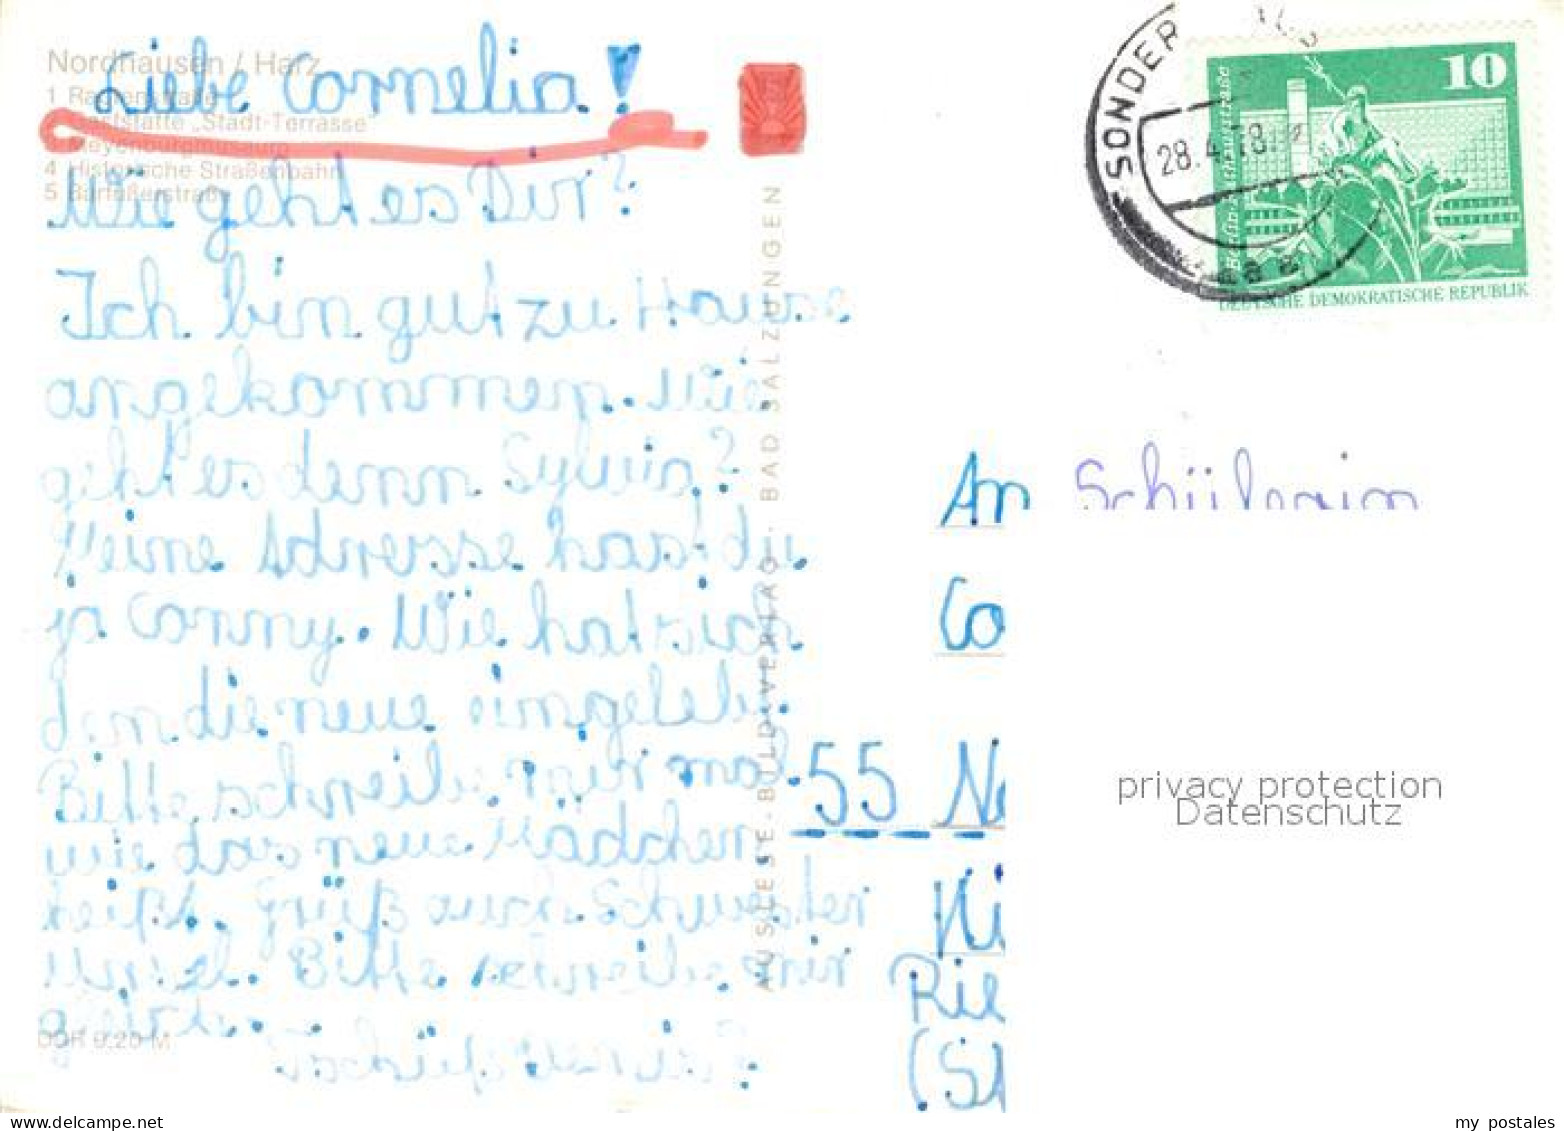 Nordhausen / Harz
1
Gaststätte „Stadt-Terrasse"
Meyenburgmuseum
4 Historische Straßenbahn
5 Barfüßerstraße
Liebe Cornelia!
Wie geht es Dir?
Ich bin gut zu Hause
angekommen. Wie
geht es denn Sylvia?
Meine Adresse hast du
ja Conny. Wie hat sich
den die neue eingelebt.
Bitte schreibe mir mal
wie das neue Mädchen
heißt. Grüß auch Schwester
Bitte schreibe mir
DDR 0,20 M
AUSLESE-BILD-VERLAG · BAD SALZUNGEN
SONDER
28.4.78
10
Berlin-Alexanderstrasse
DEUTSCHE DEMOKRATISCHE REPUBLIK
An Schülerin
Co
55 No
Ki
Rie
(Sh
privacy protection
Datenschutz
www.delcampe.net
my_postales